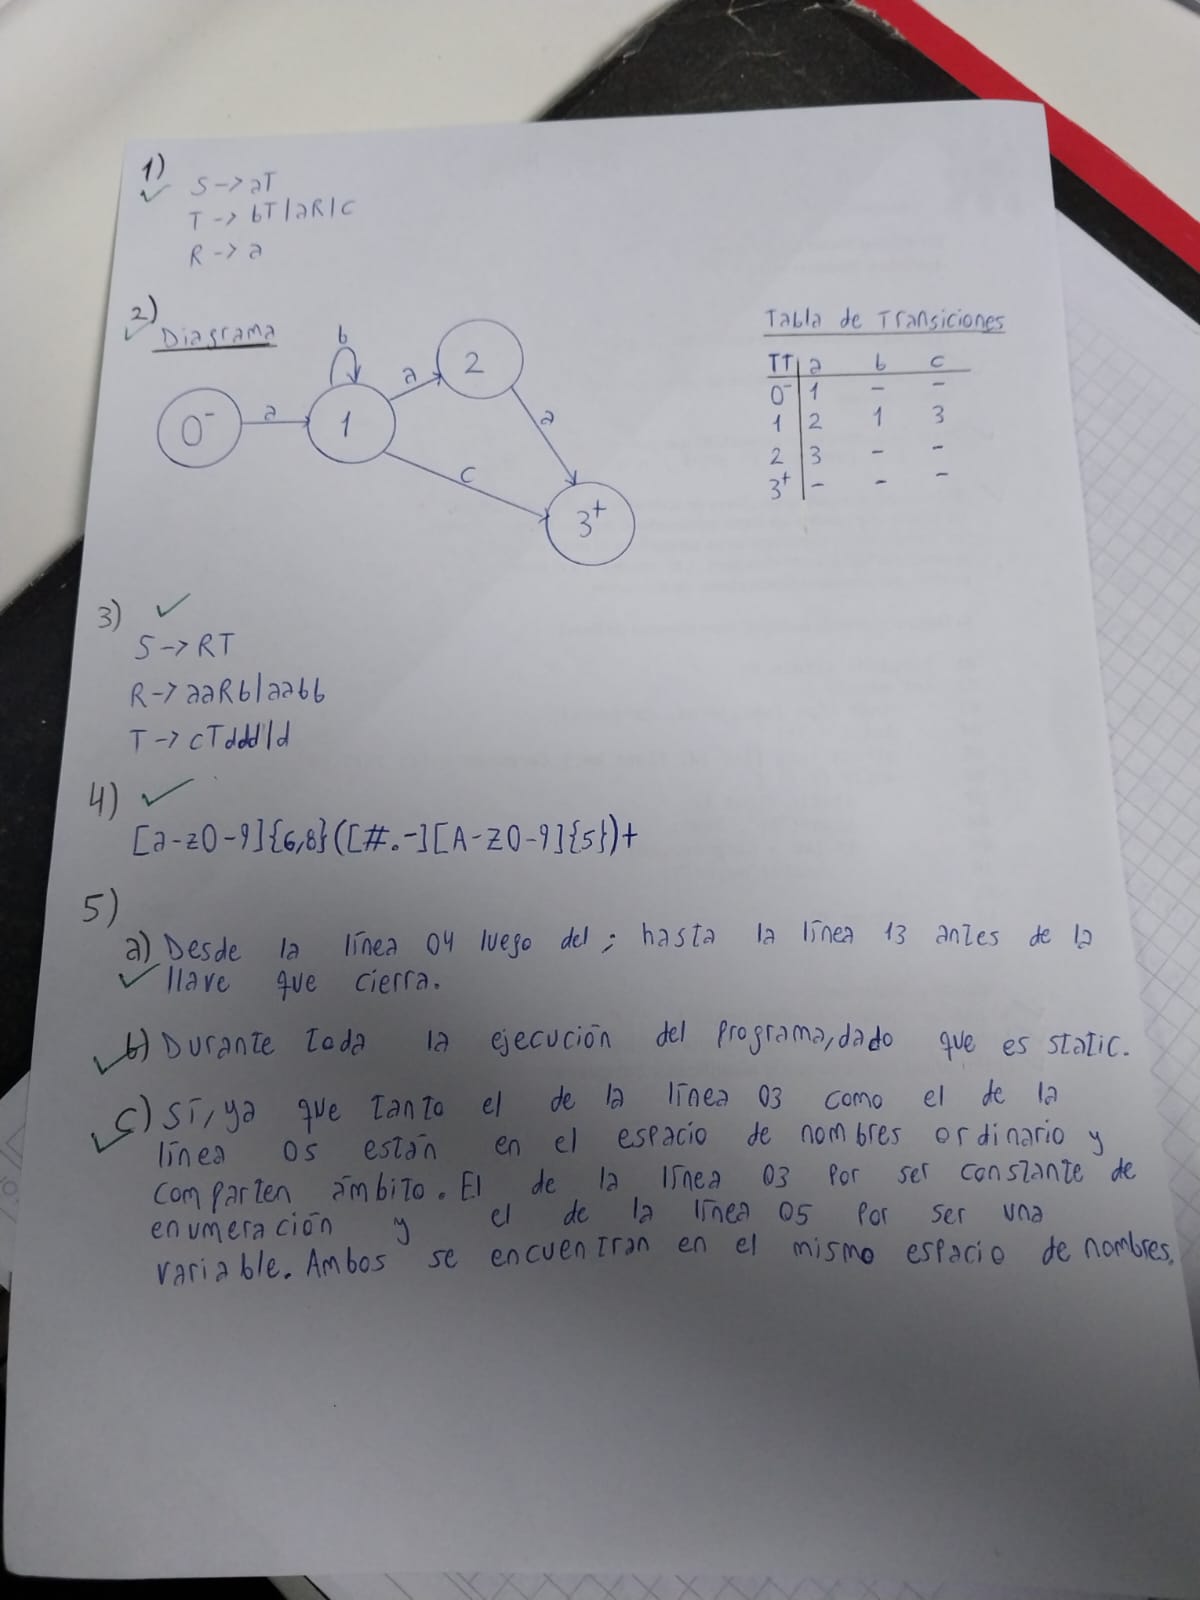 1)
S -> aT
T -> bT|aR|c
R -> a
2)
Diagrama
b
a
a
a
c
0⁻
1
2
3⁺
Tabla de Transiciones
TT a b c
0⁻ 1 - -
1 2 1 3
2 3 - -
3⁺ - - -
3)
S -> RT
R -> aaRb|aabb
T -> cTddd|d
4)
[a-z0-9]{6,8}([#.-][A-Z0-9]{5})+
5)
a) Desde la línea 04 luego del ; hasta la línea 13 antes de la
llave que cierra.
b) Durante toda la ejecución del programa, dado que es static.
c) Sí, ya que tanto el de la línea 03 como el de la
línea 05 están en el espacio de nombres ordinario y
comparten ámbito. El de la línea 03 por ser constante de
enumeración y el de la línea 05 por ser una
variable. Ambos se encuentran en el mismo espacio de nombres.